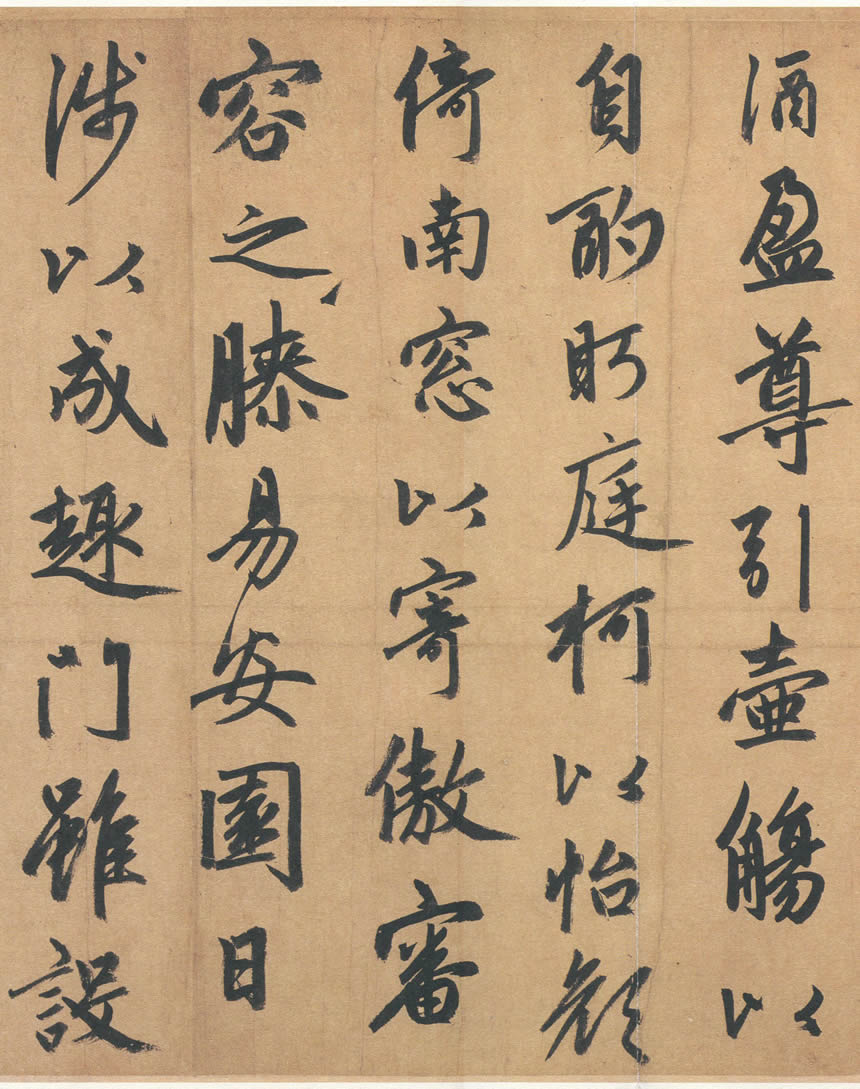 酒盈尊引壷觴以
自酌眄庭柯以怡顔
倚南窓以寄傲審
容之膝易安園日
渉以成趣門雖設